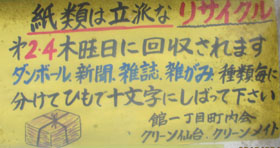 紙類は立派なリサイクル
才2.4木旺日に回収されます
ダンボール.新聞.雑誌.雑がみ 種類毎に
分けてひもで十文字にしばって下さい
館一丁目町内会
クリーン仙台.クリーンメイト